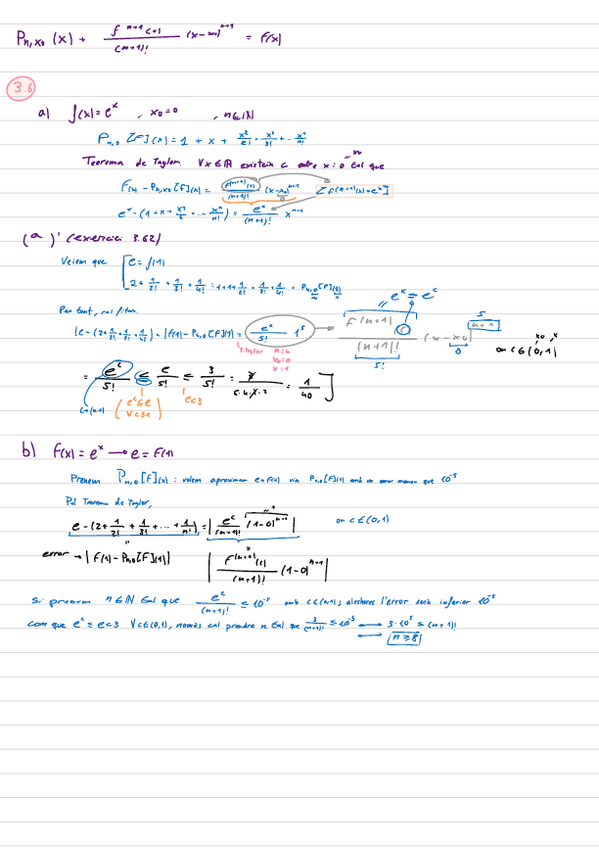 Pn,x0 (x) + f^(n+1)(c)/(n+1)! (x-x0)^(n+1) = f(x)
3.6
a) f(x)=e^x , x0=0 , n∈ℕ
Pn,0 [f](x) = 1 + x + x²/2! + x³/3! + ... x^n/n!
Teorema de Taylor ∀x∈ℝ existeix c entre x i 0 tal que
f(x) - Pn,x0[f](x) = f^(n+1)(c)/(n+1)! (x-x0)^(n+1) [f^(n+1)(x)=e^x]
e^x - (1+x+x²/2 + ... x^n/n!) = e^c/(n+1)! x^(n+1)
(a)' (exercici 3.62)
Veiem que [e = f(1)
2+1/2!+1/3!+1/4! = 1+1+1/2!+1/3!+1/4! = P4,0[f](1)
e^x = e^c
Per tant,
|e-(2+1/2!+1/3!+1/4!)| = |f(1) - P4,0[f](1)| = e^c/5! 1^5
f^(n+1)(c)/(n+1)! (x-x0)^(n+1)
5
0
5!
x0 x
on c∈(0,1)
T. Taylor n=4
x0=0
x=1
= e^c/5! ≤ e/5! ≤ 3/5! = 3/5·4·3·2 = 1/40 ]
c∈(0,1)
(e^c≤e ∀c≤1)
e<3
b) f(x) = e^x → e = f(1)
Prenem Pn,0[f](x) : volem aproximar e=f(1) via Pn,0[f](1) amb un error menor que 10^-5
Pel Teorema de Taylor,
e-(2+1/2!+1/3!+...+1/n!) = |e^c/(n+1)! (1-0)^(n+1)| on c∈(0,1)
error → |f(1) - Pn,0[f](1)| |f^(n+1)(c)/(n+1)! (1-0)^(n+1)|
Si prenem n∈ℕ tal que e^c/(n+1)! ≤ 10^-5 amb c∈(0,1); aleshores l'error serà inferior 10^-5
Com que e^c ≤ e<3 ∀c∈(0,1), només cal prendre n tal que 3/(n+1)! ≤ 10^-5 ⟷ 3·10^5 ≤ (n+1)!
⟷ n≥8